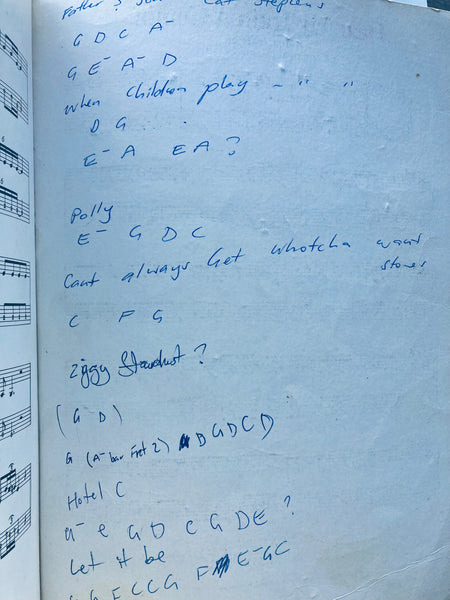 Father & Son Cat Stephens
G D C A-
G E- A- D
when children play - " "
D G ...
E- A E A ?
Polly
E- G D C
Cant always Get whotcha want
stones
C F G
Ziggy Stardust ?
(G D)
G (A- bar Fret 2) D G D C D
Hotel C
a- e G D C G D E ?
Let it be
G F C C G F E- G C